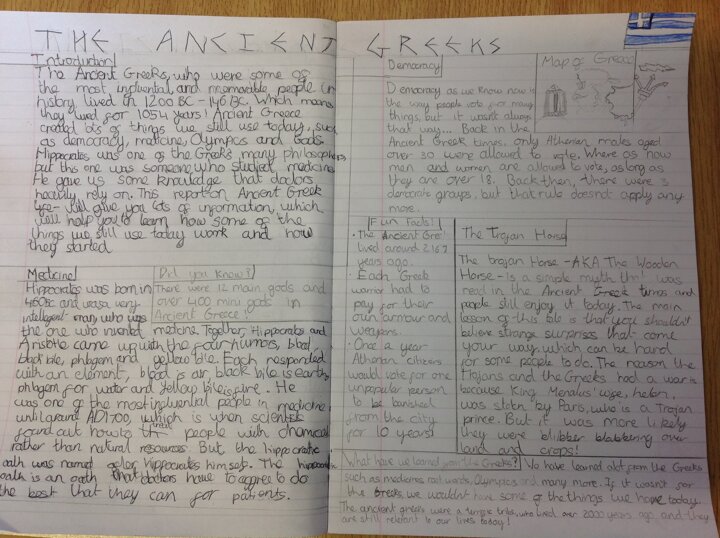 THE ANCIENT GREEKS
Introduction
The Ancient Greeks, who were some of
the most influential, and memorable people in
history lived in 1200 BC - 146 BC. Which means
they lived for 1054 years! Ancient Greece
created lots of things we still use today, such
as democracy, medicine, Olympics and Gods.
Hippocrates was one of the Greeks many philosophers
but this one was someone who studied medicine.
He gave us some knowledge that doctors
heavily rely on. This report on Ancient Greek
life will give you lots of information, which
will help you to learn how some of the
things we still use today work and how
they started.
Medicine
Hippocrates was born in
460BC and was a very
intelligent man, who was
Did you know?
There were 12 main gods and
over 400 mini gods in
Ancient Greece!
the one who invented medicine. Together, Hippocrates and
Aristotle came up with the four humors, blood,
black bile, phlegm and yellow bile. Each responded
with an element, blood is air, black bile is earth,
phlegm for water and yellow bile is fire. He
was one of the most influential people in medicine
until around AD1700, which is when scientists
found out how to treat people with chemicals
rather than natural resources. But, the hippocratic
oath was named after hippocrates himself. The hippocratic
oath is an oath that doctors have to agree to do
the best that they can for patients.
Democracy
Democracy as we know now is
the way people vote for many
things, but it wasn't always
that way... Back in the
Map of Greece
Ancient Greek times, only Athenian males aged
over 30 were allowed to vote. Where as now
men and women are allowed to vote, as long as
they are over 18. Back then, there were 3
democratic groups, but that rule does not apply any
more.
Fun Facts!
• The Ancient Gree
lived around 2167
years ago.
• Each Greek
warrior had to
pay for their
own armour and
weapons.
• Once a year
Athenian citizens
would vote for one
unpopular person
to be banished
from the city
for 10 years!
The Trojan Horse
The trojan Horse - AKA The Wooden
Horse - is a simple myth that was
read in the Ancient Greek times and
people still enjoy it today. The main
lesson of this tale is that you shouldn't
believe strange surprises that come
your way, which can be hard
for some people to do. The reason the
Trojans and the Greeks had a war is
because King Menalus' wife, helen,
was stolen by Paris, who is a Trojan
prince. But it was more likely
they were blabbering over
land and crops!
What have we learned from the Greeks?
We have learned alot from the Greeks
such as medicine, root words, Olympics and many more. If it wasn't for
the Greeks, we wouldn't have some of the things we have today...
The ancient greeks were a terrific tribe, who lived over 2000 years ago and they
are still relevant to our lives today!